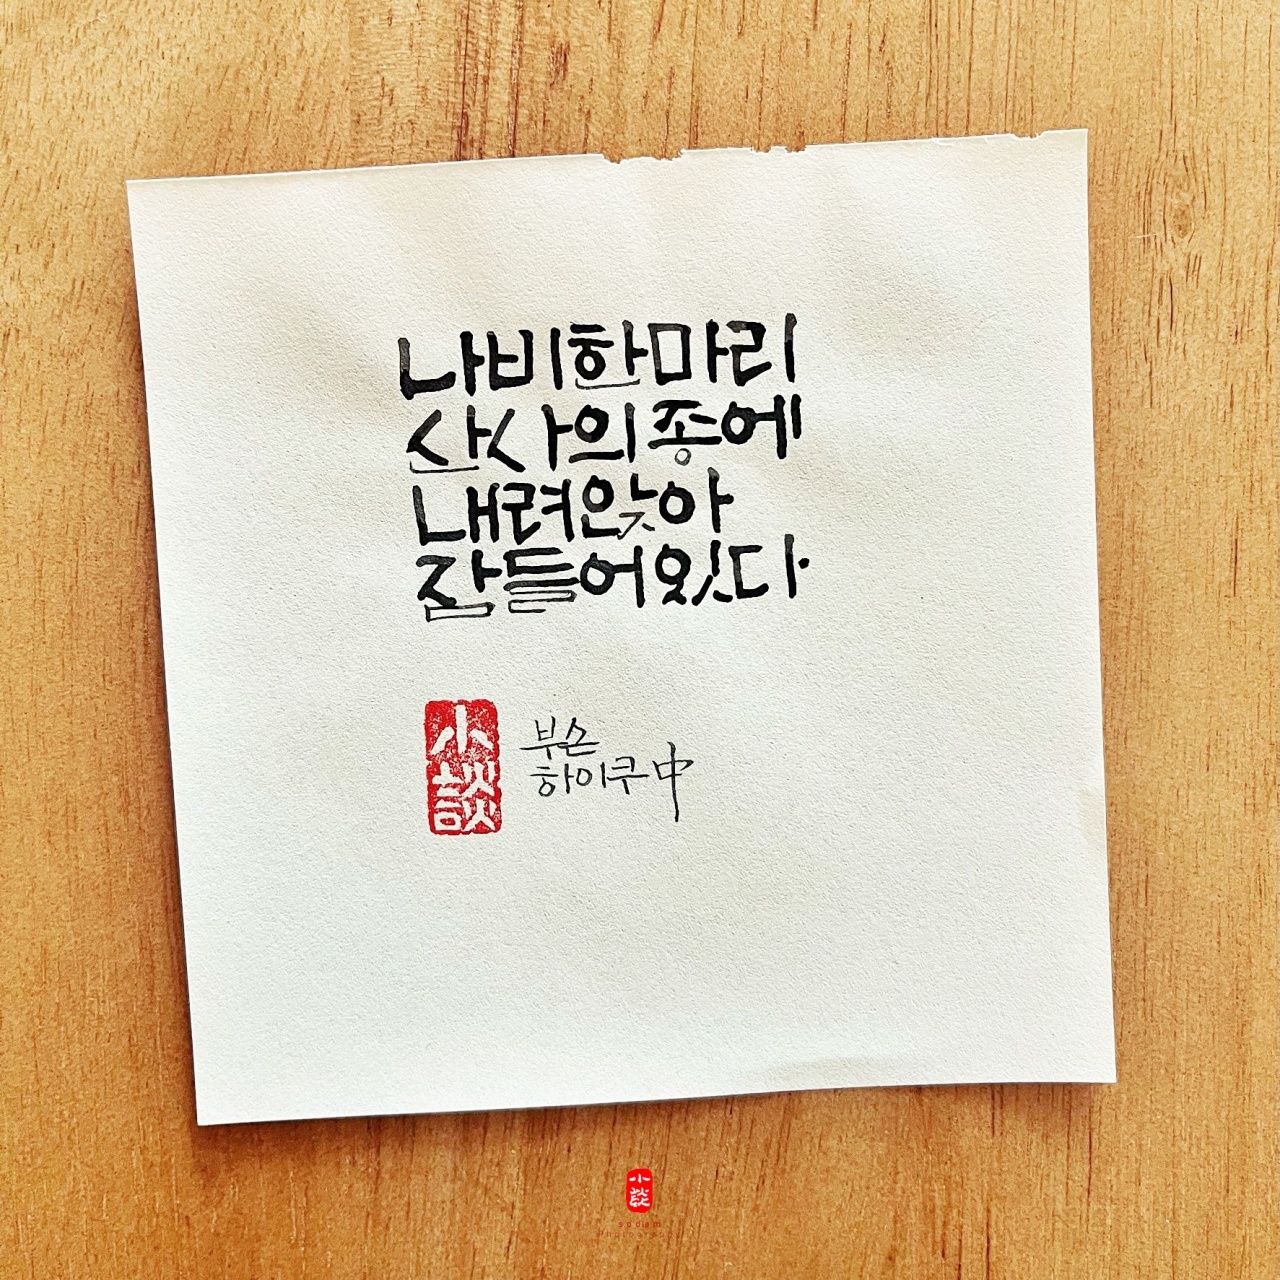 나비한마리
산사의종에
내려앉아
잠들어있다.
小談
부손
하이쿠中
小談
sodam